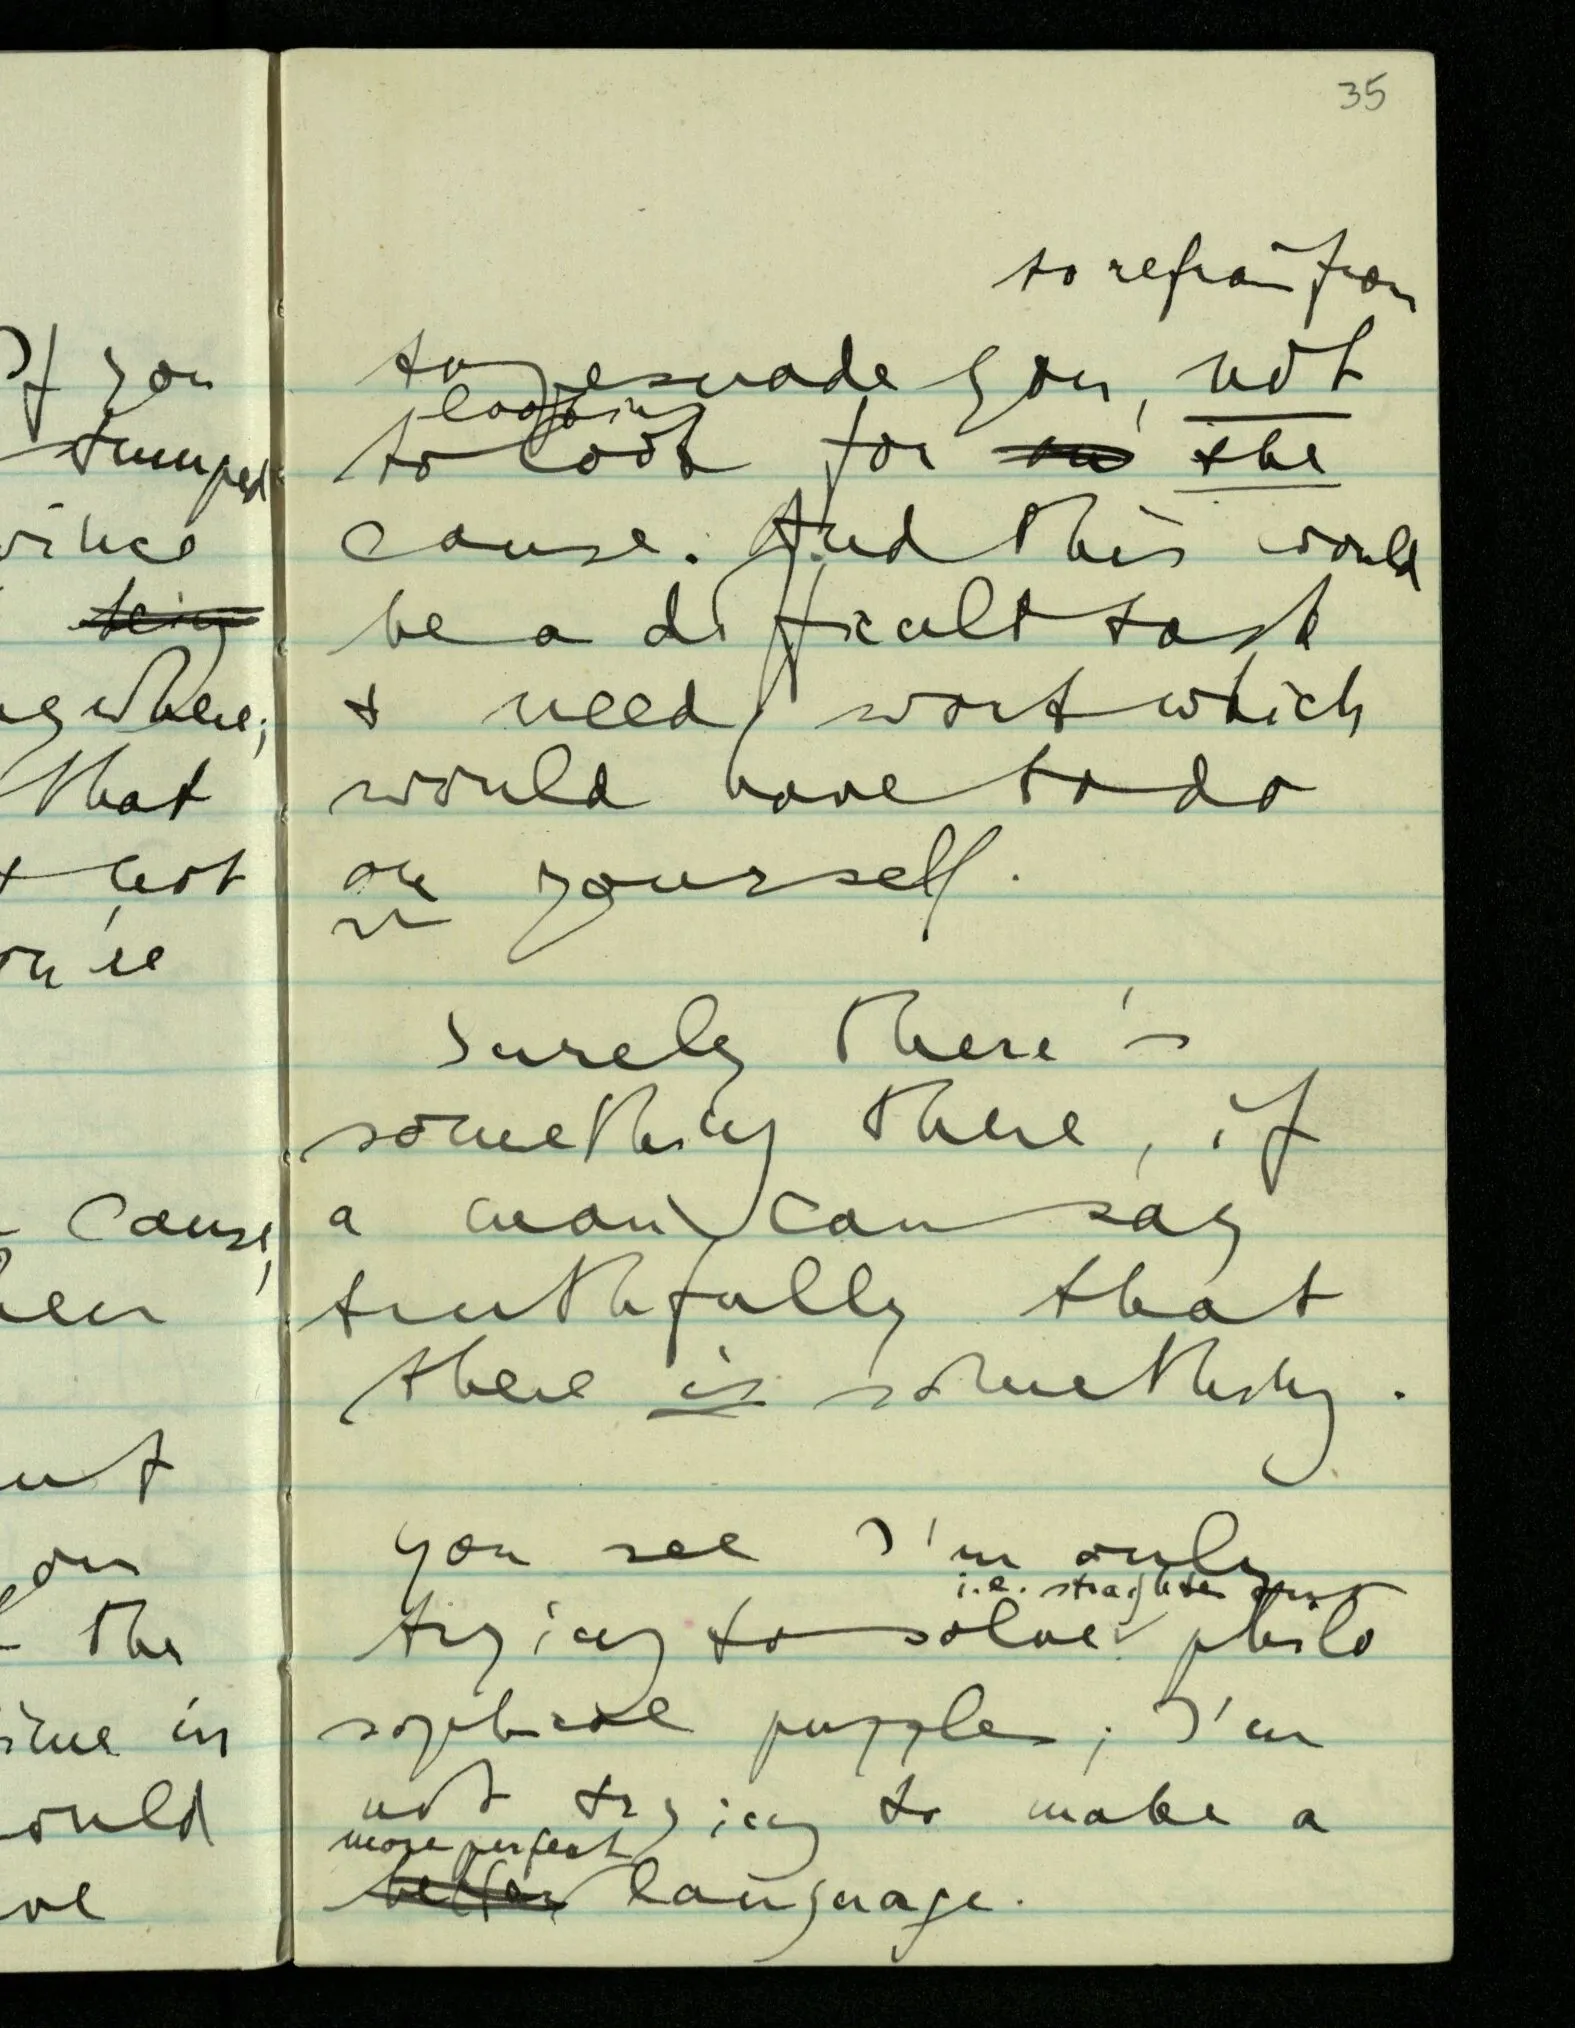 35
to refrain from
to persuade you, not
looking
to look for an the
cause. And this would
be a difficult task
& need work which
would have to do
on yourself.
Surely there's
something there, if
a man can say
truthfully that
there is something.
you see I'm only
i.e. straghten out
trying to solve philo
sophical puzzles; I'm
not trying to make a
more perfect
better language.
If you
stumped
being
where;
that
not
you're
cause,
the
in